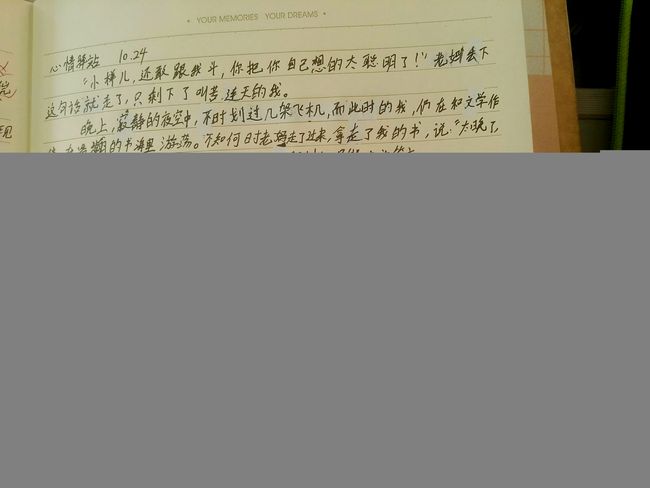 • YOUR MEMORIES YOUR DREAMS •
心情驿站 10.24
"小样儿,还敢跟我斗,你把你自己想的太聪明了!"老姆丢下
这句话就走了,只剩下了叫苦连天的我。
晚上,寂静的夜空中,不时划过几架飞机,而此时的我,仍在和文学作
的书海里游荡。不知何时老姆走了过来,拿走了我的书,说:"太晚了